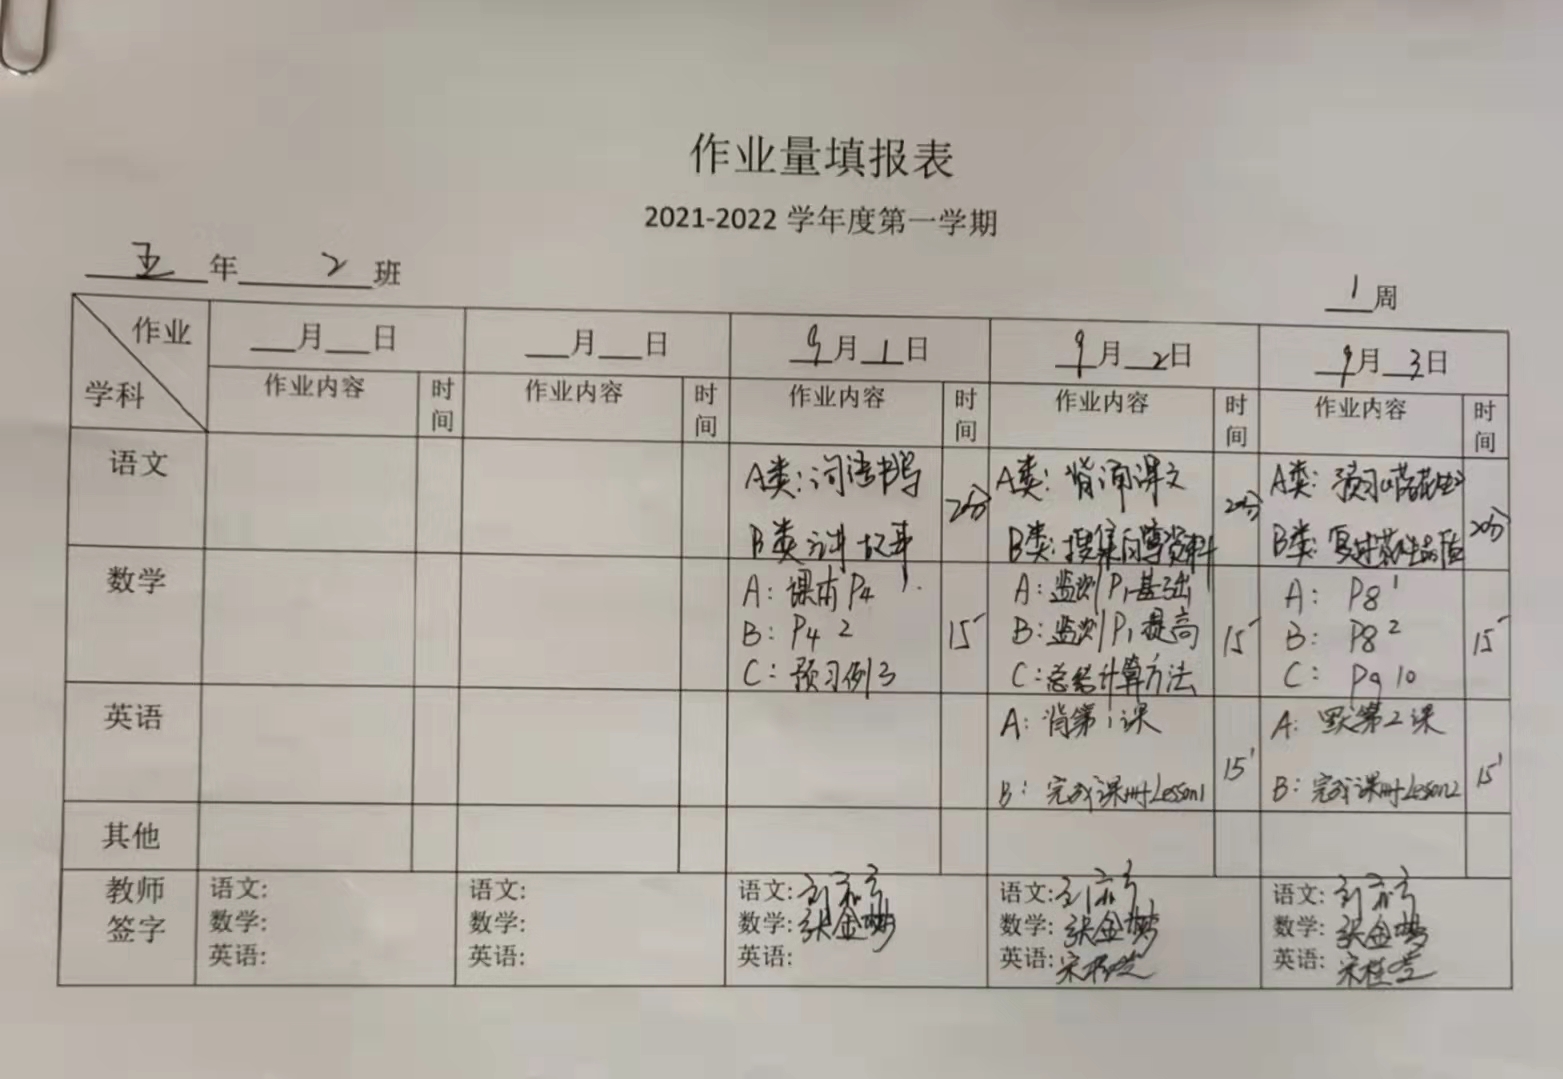 作业量填报表
2021-2022 学年度第一学期
五年2班
1周
作业
学科
月 日
月 日
9月1日
9月2日
9月3日
作业内容 时间
作业内容 时间
作业内容 时间
作业内容 时间
作业内容 时间
语文
A类:词语书写
B类 讲故事
20分
A类:背诵课文
B类:搜集白鹭资料
20分
A类:预习落花生
B类:写过花生品质
20分
数学
A:课本P4 1
B:P4 2
C:预习例3
15'
A:监测P1基础
B:监测P1提高
C:总结计算方法
15'
A:P8 1
B:P8 2
C:P9 10
15'
英语
A:背第1课
B:完成课时Lesson1
15'
A:默第2课
B:完成课时Lesson2
15'
其他
教师签字
语文:
数学:
英语:
语文:
数学:
英语:
语文:
数学:张金
英语:
语文:
数学:张金
英语:宋桂芝
语文:
数学:张金
英语:宋桂芝